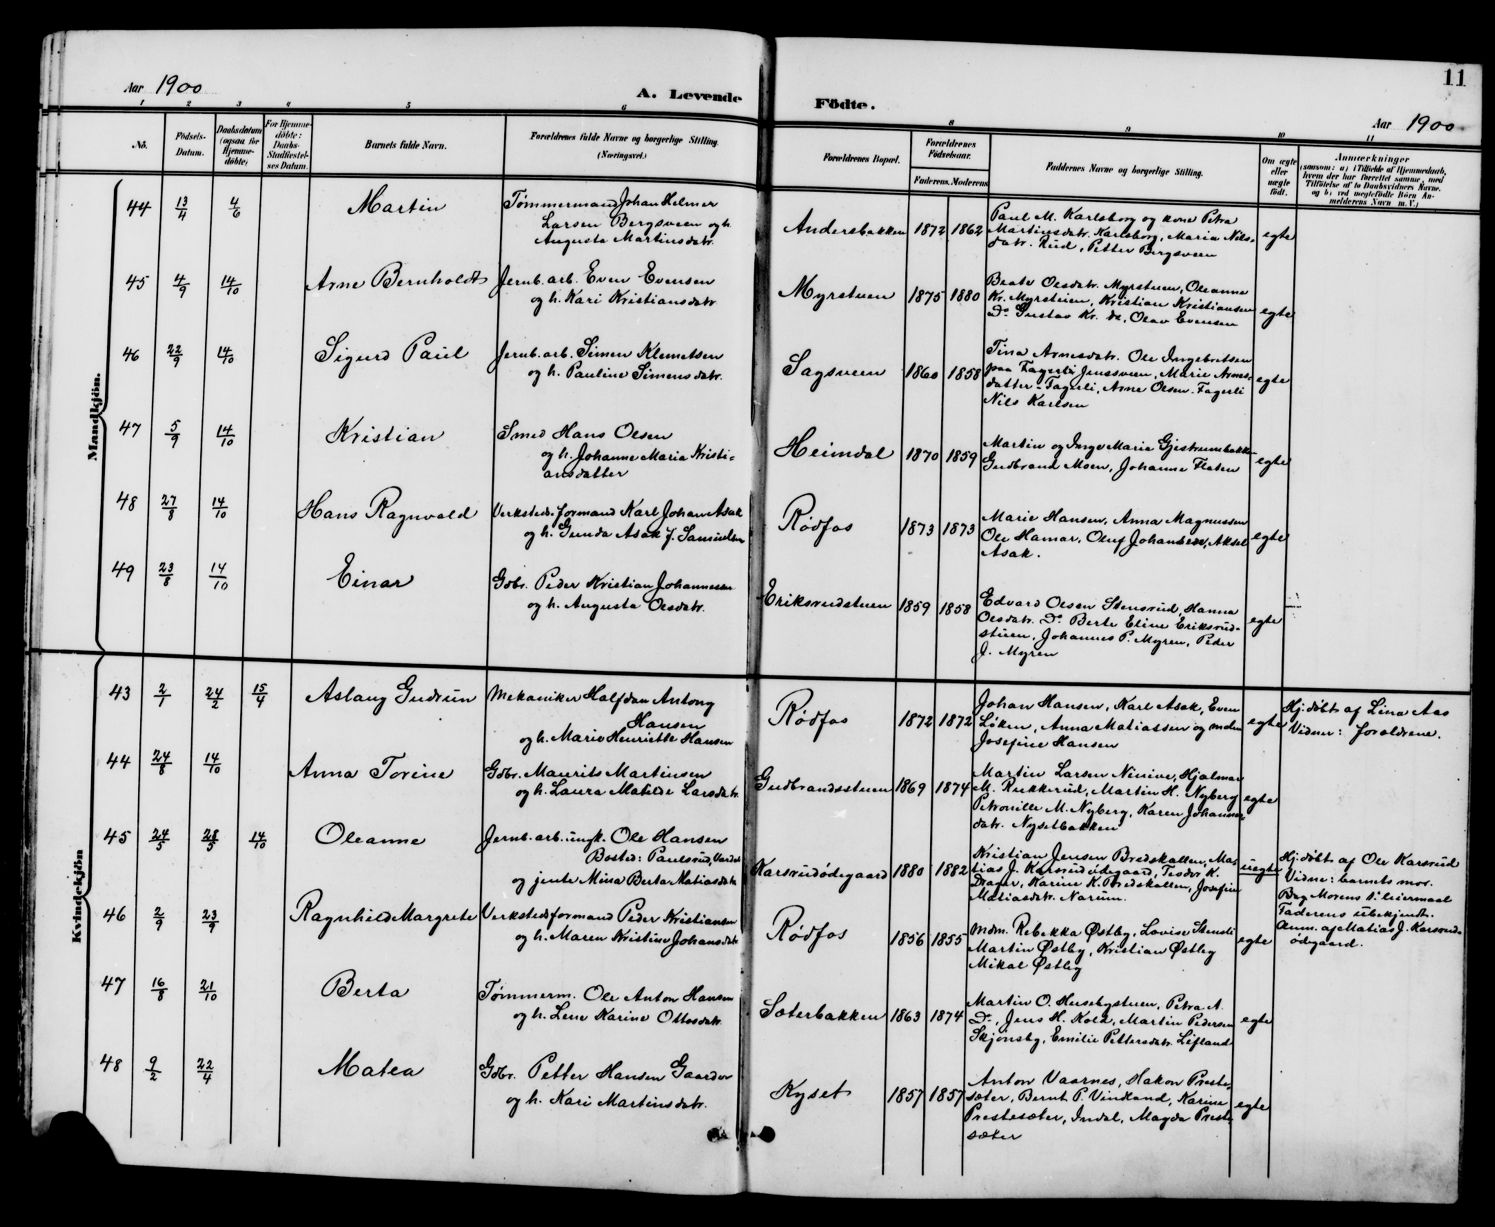 Aar 1900
A. Levende
Födte.
11
Aar 1900
1 2 3 4 5 6
8 9 10 11
No.
Födsels-
Datum.
Daabsdatum
(ogsaa for
Hjemme-
döbte)
For Hjemme-
döbte:
Daabs-
Stadfæstel-
ses Datum.
Barnets fulde Navn.
Forældrenes fulde Navne og borgerlige Stilling.
(Næringsvei.)
Forældrenes Bopæl.
Forældrenes
Födselsaar.
Faderens. Moderens
Faddernes Navne og borgerlige Stilling.
Om ægte
eller
uægte
födt.
Anmærkninger
(saasom: a) i Tilfælde af Hjemmedaab,
hvem der har forrettet samme, med
Tilföielse af to Daabsvidners Navne,
og b) ved uægtefödte Börn An-
melderens Navn m. V.)
Mandkjön.
44 13/4 4/6 Martin Tømmermand Johan Helmer
Larsen Bergsveen og h.
Augusta Martinsdatr.
Andersbakken 1872 1862 Paul M. Karlsborg og kone Petra
Martinusdatr. Karlsborg, Maria Nils-
datr. Rud, Petter Bergsveen
egte
45 4/9 14/10 Arne Bernholdt Jernb. arb. Even Evensen
og h. Kari Kristiansdatr.
Myrstuen 1875 1880 Beate Olesdatr. Myrstuen, Oleanna
Kr. Myrstuen, Kristian Kristiansen
Do Gustav Kr. do, Olav Evensen
egte
46 22/9 14/10 Sigurd Paul Jernb. arb. Simen Klemetsen
og h. Pauline Simensdatr.
Sagsveen 1860 1858 Tina Arnesdatr. Ole Ingebretsen
paa Fagerli Jenssveen, Marie Arnes-
datter-Fagerli, Arne Olsen-Fagerli
Nils Karlsen
egte
47 5/9 14/10 Kristian Smed Hans Olsen
og h. Johanne Maria Kristi-
ansdatter
Heimdal 1870 1859 Martin og Inge Marie Gjestrumsbakken
Gudbrand Moen, Johanne Flaten
egte
48 27/8 14/10 Hans Ragnvald Verksteds formand Karl Johan Asak
og h. Gunda Asak f. Samuelsen
Rødfos 1873 1873 Marie Hansen, Anna Magnussen
Ole Hamar, Oluf Johansen, Aksel
Asak.
egte
49 23/8 14/10 Einar Gdbr. Peder Kristian Johannessen
og h. Augusta Olesdatr.
Eriksrudstuen 1859 1858 Edvard Olsen Stensrud, Hanna
Olesdatr. Do Berte Eline Eriksrud-
stuen, Johannes P. Myren, Peder
J. Myren
egte
Kvindekjön
43 2/1 24/2 15/4 Aslaug Gudrun Mekaniker Halfdan Antony
Hansen
og h. Marie Henriette Hansen
Rødfos 1872 1872 Johan Hansen, Karl Asak, Even
Løken, Anna Matiassen og mdm
Josefine Hansen
egte Hj: døbt af Lina Aas
Vidner: forældrene.
44 24/8 14/10 Anna Torine Gdbr. Maurits Martinsen
og h. Laura Matilde Larsdatr.
Gudbrandsstuen 1869 1874 Martin Larsen Ninive, Hjalmar
M. Rukkerud, Martin H. Nyberg
Petronille M. Nyberg, Karen Johannes-
datr. Nysetbakken
egte
45 24/5 28/5 14/10 Oleanne Jernb. arb. ungk. Ole Hansen
Bosted: Paulsrud, Vardal
og jente Mina Berta Matiasdatr.
Karsrudødegaard 1880 1882 Kristian Jensen Bredskallen, Ma-
tias J. Karsrudødegaard, Teodor K.
Drager, Karine K. Bredskallen, Josefine
Matiasdatr. Narum.
uegte Hj: døbt af Ole Karsrud
Vidne: barnets mor.
Beg Morens 1' leiermaal
Faderens ubekjendt.
Anm. af Matias J. Karsrud-
ødegaard.
46 2/9 23/9 Ragnhild Margrete Verkstedsformand Peder Kristiansen
og h. Maren Kristine Johansdatr.
Rødfos 1856 1855 Mdm. Rebekka Østby, Lovise Stensli
Martin Østby, Kristian Østby
Mikal Østby
egte
47 16/8 21/10 Berta Tømmerm. Ole Anton Hansen
og h. Lene Karine Ottosdatr.
Sæterbakken 1863 1874 Martin O. Husebystuen, Petra A.
Do, Jens H. Kold, Martin Pedersen
Skjønsby, Emilie Pettersdatr. Lifland
egte
48 9/2 22/4 Matea Gdbr. Petter Hansen Gaarder
og h. Kari Martinsdatr.
Kyset 1857 1857 Anton Vaarnes, Hakon Preste-
sæter, Bernt P. Vindland, Karine
Prestesæter, Indal, Magda Preste-
sæter
egte